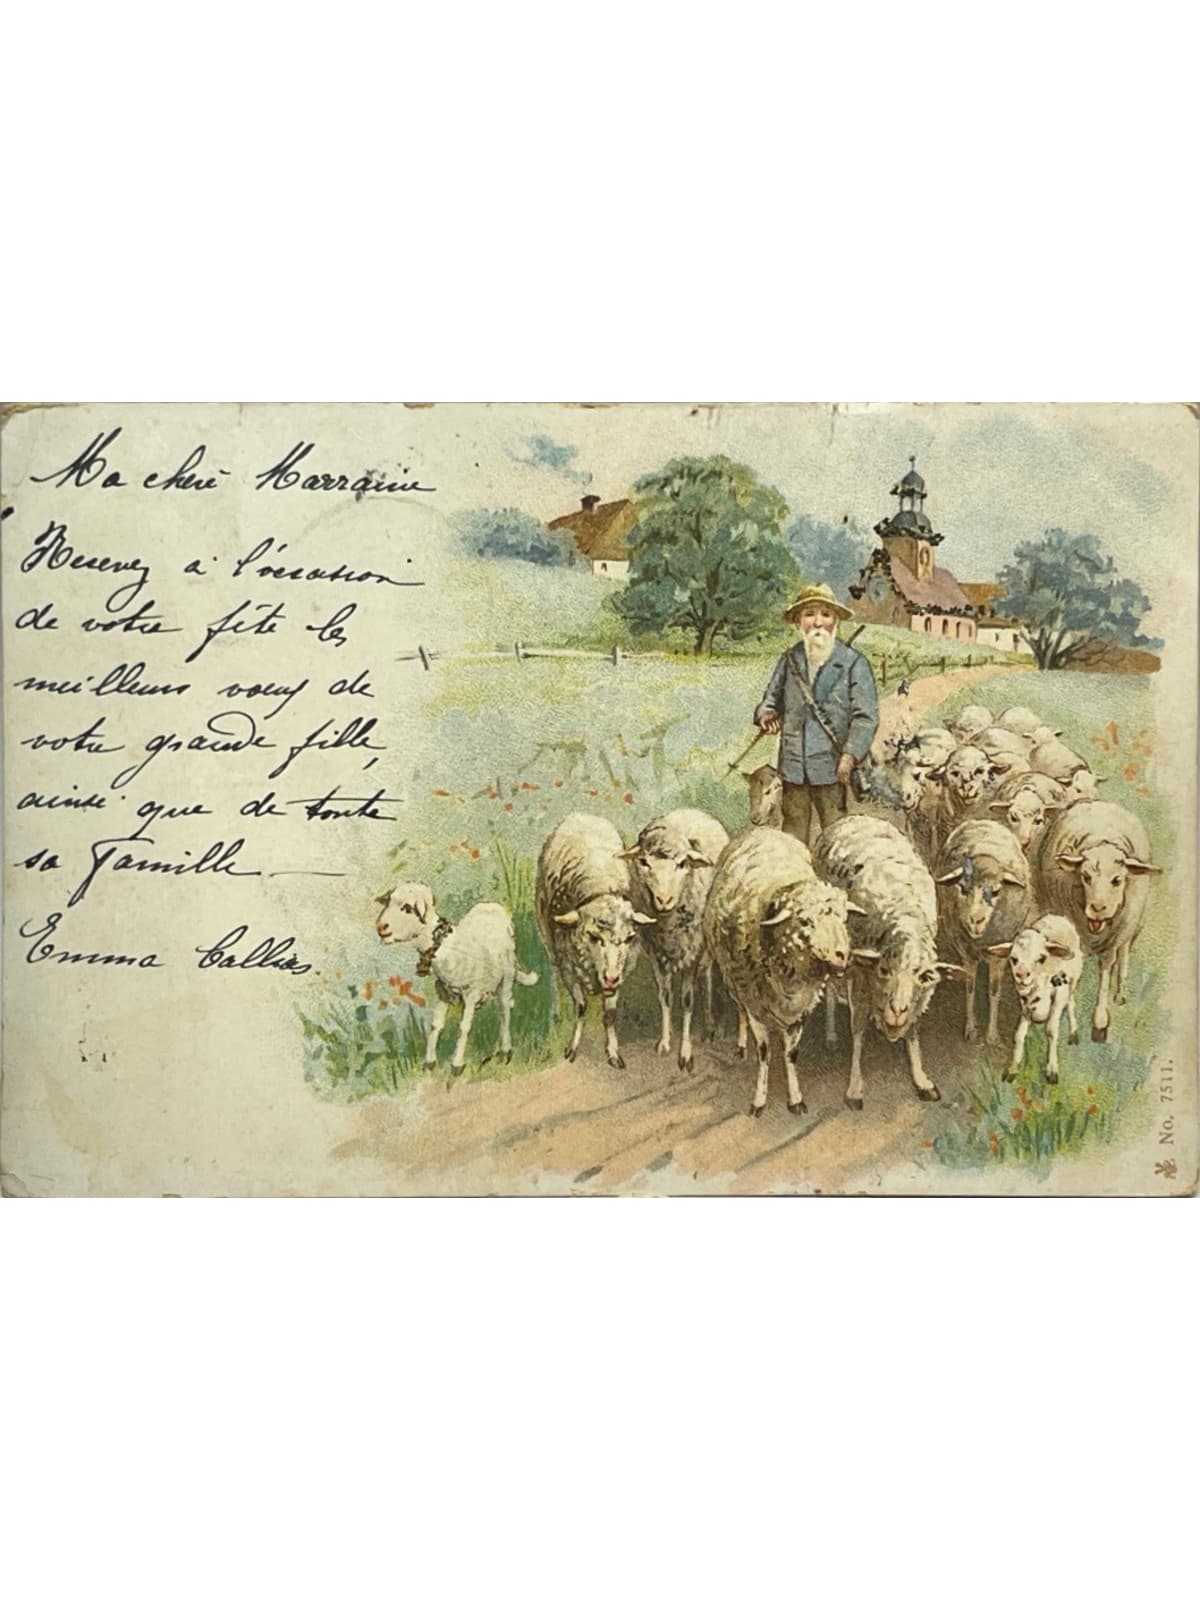 Ma chère Marraine
Recevez à l'occasion
de votre fête les
meilleurs vœux de
votre grande fille,
ainsi que de toute
sa famille —
Emma
No. 7511.